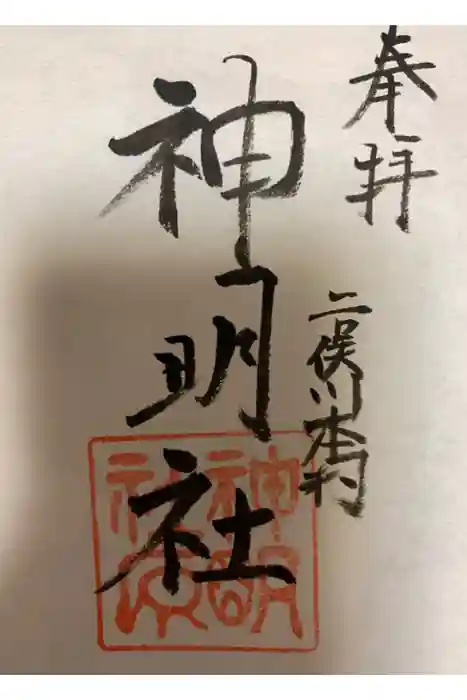 奉拝
二俣川本村
神明社
神明社印